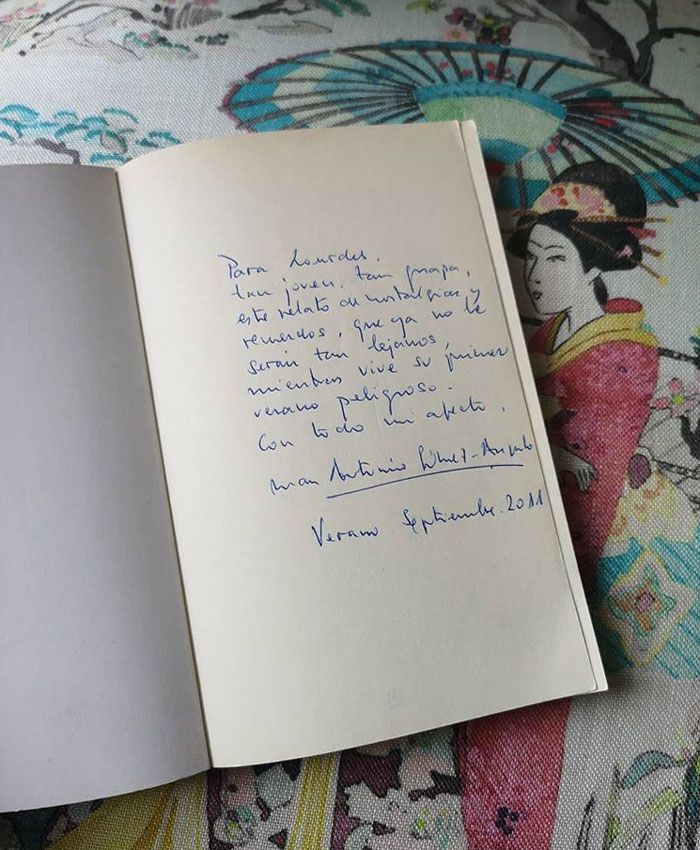 Para Lourdes,
tan joven, tan guapa,
este relato de nostalgias y
recuerdos, que ya no le
serán tan lejanos,
mientras vive su primer
verano peligroso.
Con todo mi afecto,
Juan Antonio Gómez-Angulo
Verano Septiembre-2011